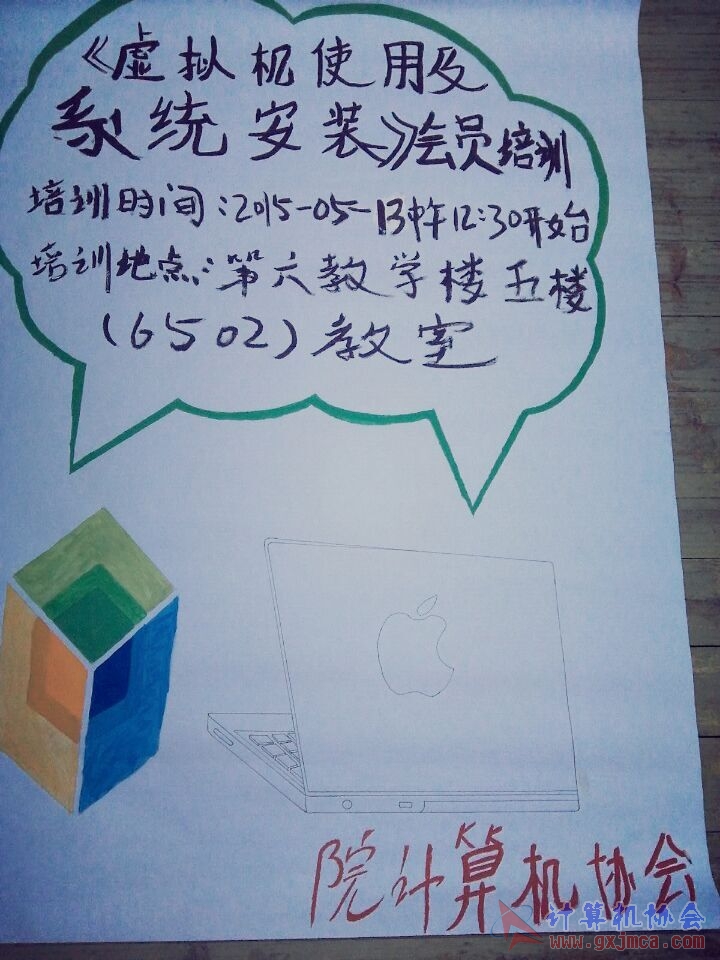 《虚拟机使用及
系统安装》会员培训
培训时间:2015-05-13中午12:30开始
培训地点:第六教学楼五楼
(6502)教室
院计算机协会
计算机协会
www.gxjmca.com